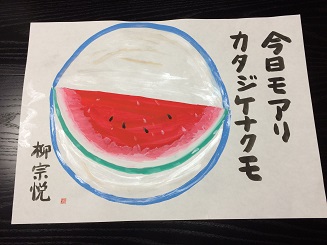 今日モアリ
カタジケナクモ
柳宗悦